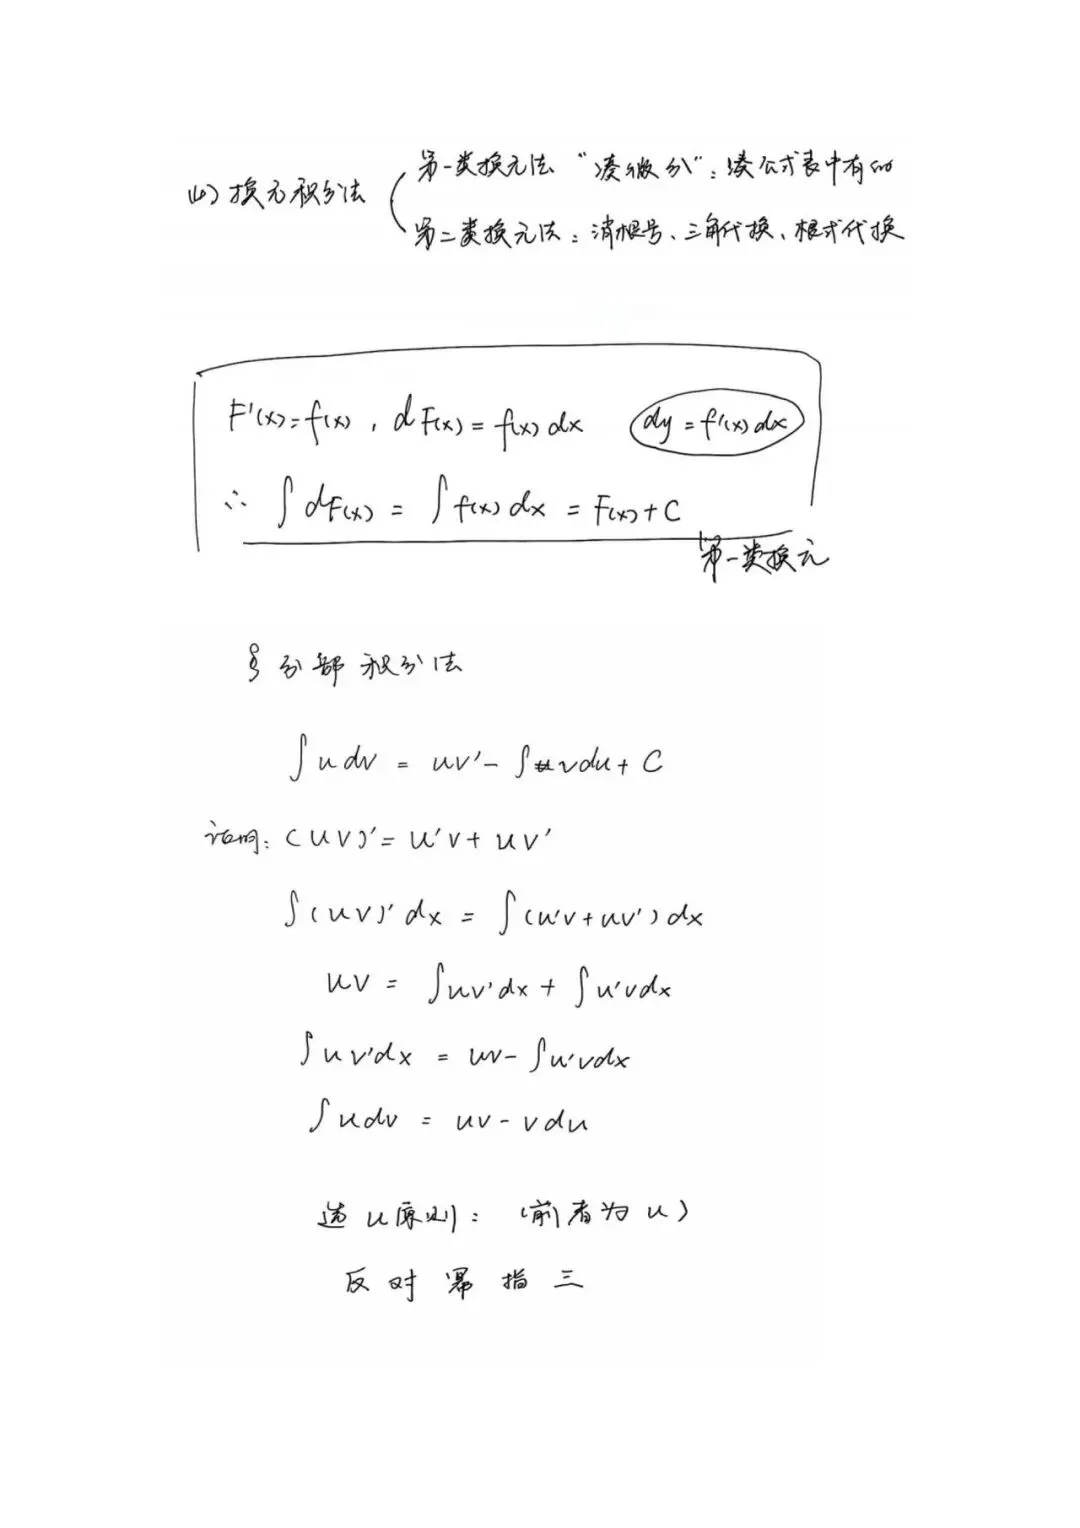 (4) 换元积分法
第一类换元法 “凑微分”: 凑公式表中有的
第二类换元法: 消根号、三角代换、根式代换
F'(x)=f(x), dF(x)=f(x)dx dy=f'(x)dx
∴ ∫dF(x) = ∫f(x)dx = F(x)+C
第一类换元
§ 分部积分法
∫udv = uv'-∫vdu+C
证明: (uv)'=u'v+uv'
∫(uv)'dx = ∫(u'v+uv')dx
uv = ∫uv'dx+∫u'vdx
∫uv'dx = uv-∫u'vdx
∫udv = uv-vdu
选u原则: (前者为u)
反对幂指三